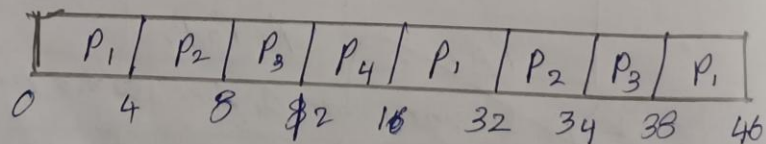 P1 P2 P3 P4 P1 P2 P3 P1
0 4 8 12 16 32 34 38 46